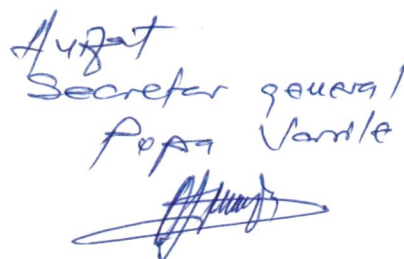 Avizat
Secretar general
Popa Vasile